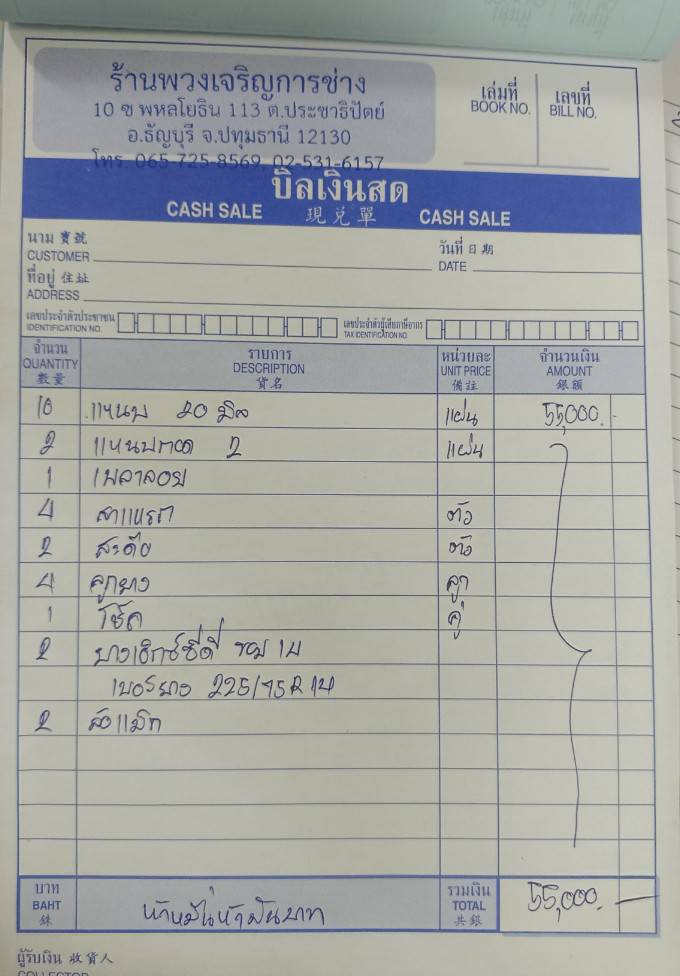 ร้านพวงเจริญการช่าง
10 ซ พหลโยธิน 113 ต.ประชาธิปัตย์
อ.ธัญบุรี จ.ปทุมธานี 12130
โทร. 065-725-8569, 02-531-6157
เล่มที่ เลขที่
BOOK NO. BILL NO.
บิลเงินสด
CASH SALE 現兑單 CASH SALE
นาม 寳號
CUSTOMER
วันที่ 日期
DATE
ที่อยู่ 住址
ADDRESS
เลขประจำตัวประชาชน
IDENTIFICATION NO.
เลขประจำตัวผู้เสียภาษีอากร
TAX IDENTIFICATION NO.
จำนวน รายการ หน่วยละ จำนวนเงิน
QUANTITY DESCRIPTION UNIT PRICE AMOUNT
數量 貨名 備註 銀額
10 แหนบ 20 มิล แผ่น 55,000.-
2 แหนบกอด 2 แผ่น
1 เพลาลอย
4 สาแหรก ตัว
2 สะดือ ตัว
4 ลูกยาง ลูก
1 โช๊ค คู่
2 ยาง ขอบ 14
เบอร์ยาง 225/75R14
2 ล้อแม็ก
บาท รวมเงิน
BAHT ห้าหมื่นห้าพันบาท TOTAL 55,000.-
銖 共銀
ผู้รับเงิน 收貨人
COLLECTOR